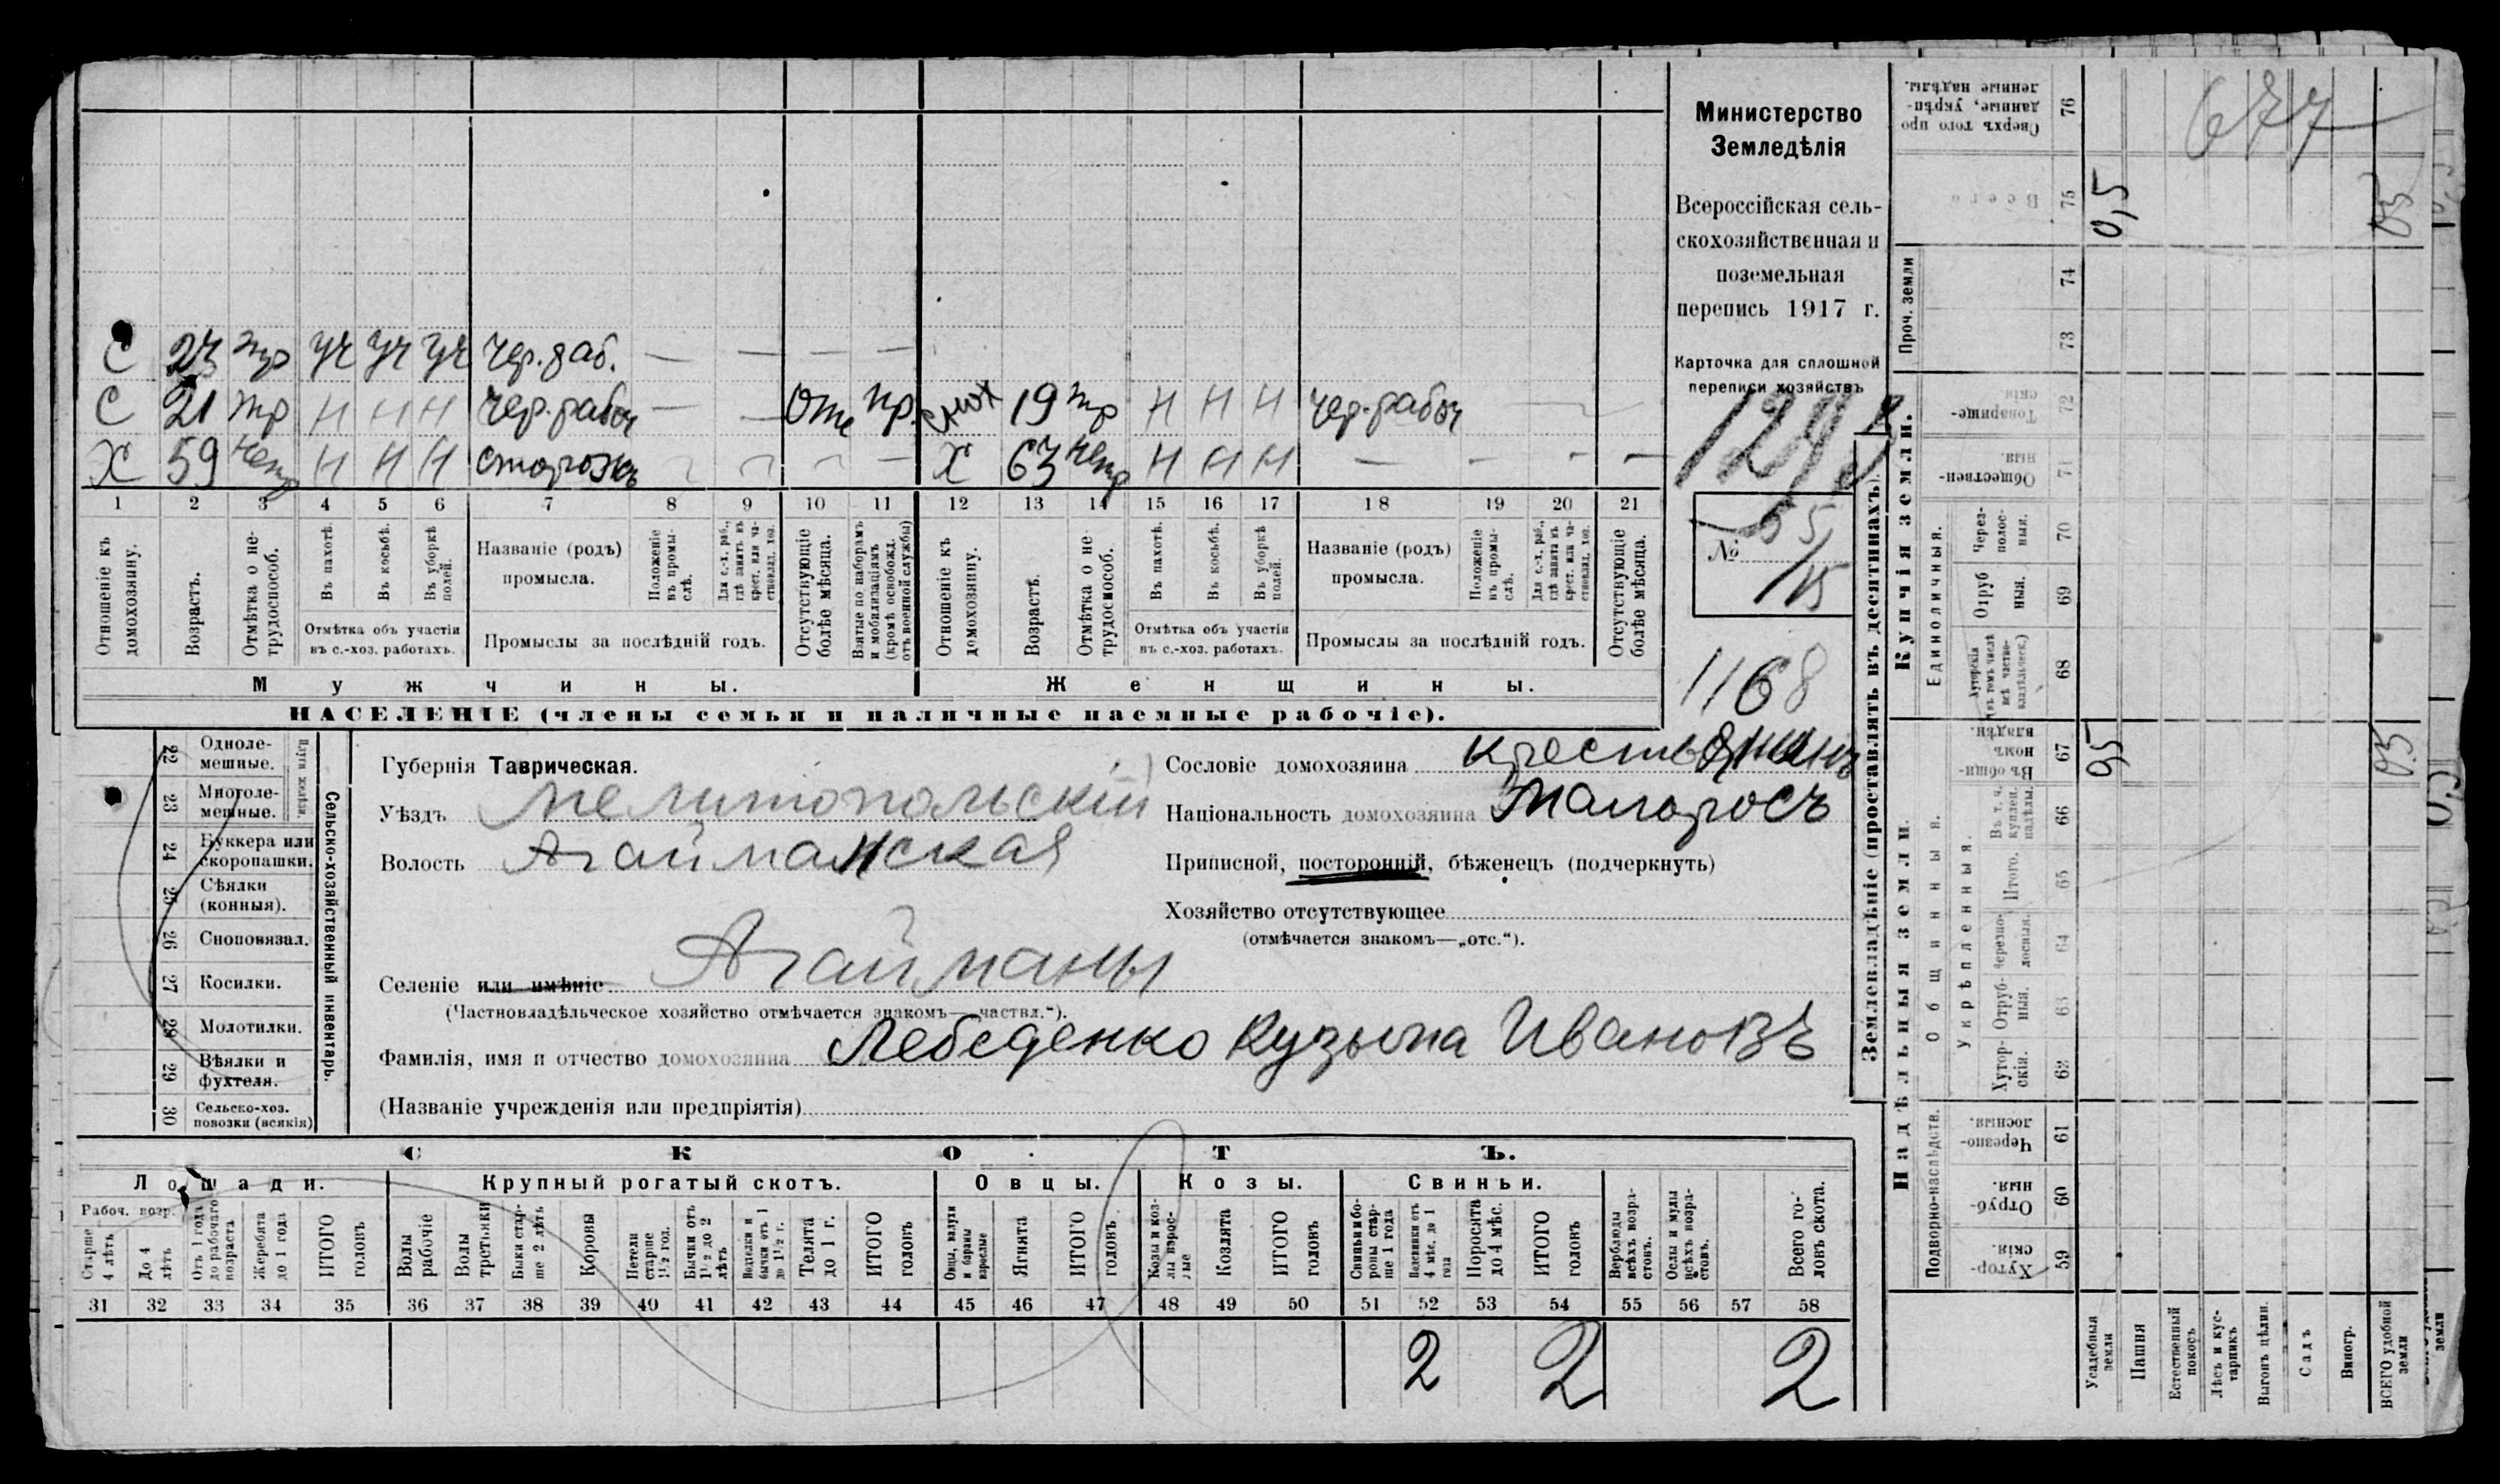 С 23 тр уч уч уч чер. раб. — — — —
С 21 тр Н Н Н чер. рабоч — — Отс пр. Снох 19 тр Н Н Н чер. рабоч
Х 59 нетр Н Н Н сторожъ Х 63 нетр Н Н Н — — - —
1 2 3 4 5 6 7 8 9 10 11 12 13 14 15 16 17 18 19 20 21
Отношеніе къ домохозяину.
Возрастъ.
Отмѣтка о нетрудоспособ.
Въ пахотѣ.
Въ косьбѣ.
Въ уборкѣ полей.
Отмѣтка объ участіи
въ с.-хоз. работахъ.
Названіе (родъ)
промысла.
Положеніе въ промыслѣ.
Для с.-х. раб., гдѣ занятъ въ крест. или частновлад. хоз.
Промыслы за послѣдній годъ.
Отсутствующіе болѣе мѣсяца.
Взятые по наборамъ и мобилизаціямъ (кромѣ освобожд. отъ военной службы)
Отношеніе къ домохозяину.
Возрастъ.
Отмѣтка о нетрудоспособ.
Въ пахотѣ.
Въ косьбѣ.
Въ уборкѣ полей.
Отмѣтка объ участіи
въ с.-хоз. работахъ.
Названіе (родъ)
промысла.
Положеніе въ промыслѣ.
Для с.-х. раб., гдѣ занята въ крест. или частновлад. хоз.
Промыслы за послѣдній годъ.
Отсутствующіе болѣе мѣсяца.
Мужчины.
Женщины.
НАСЕЛЕНІЕ (члены семьи и наличные наемные рабочіе).
Министерство
Земледѣлія
Всероссійская сель-
скохозяйственная и
поземельная
перепись 1917 г.
Карточка для сплошной
переписи хозяйствъ
55
№
1/15
1168
22 Однолемешные.
23 Многолемешные.
24 Буккера или скоропашки.
25 Сѣялки (конныя).
26 Сноповязал.
27 Косилки.
28 Молотилки.
29 Вѣялки и фухтеля.
30 Сельско-хоз. повозки (всякія)
Плуги желѣзн.
Сельско-хозяйственный инвентарь.
Губернія Таврическая.
Уѣздъ Мелитопольскій
Волость Агайманская
Селеніе или имѣніе Агайманы
(Частновладѣльческое хозяйство отмѣчается знакомъ—„частвл.“).
Фамилія, имя и отчество домохозяина Лебеденко Кузьма Ивановъ
(Названіе учрежденія или предпріятія)
Сословіе домохозяина крестьянинъ
Національность домохозяина Малоросъ
Приписной, посторонній, бѣженецъ (подчеркнуть)
Хозяйство отсутствующее
(отмѣчается знакомъ—„отс.“).
СКОТЪ.
Лошади.
Крупный рогатый скотъ.
Овцы.
Козы.
Свиньи.
Рабоч. возр.
Старше 4 лѣтъ
До 4 лѣтъ
Отъ 1 года до рабочаго возраста
Жеребята до 1 года
ИТОГО головъ
Волы рабочіе
Волы третьяки
Быки старше 2 лѣтъ
Коровы
Нетели старше 1½ год.
Бычки отъ 1½ до 2 лѣтъ
Водтелки и бычки отъ 1 до 1½ г.
Телята до 1 г.
ИТОГО головъ
Овцы, валухи и бараны взрослые
Ягнята
ИТОГО головъ
Козы и козлы взрослые
Козлята
ИТОГО головъ
Свиньи и боровы старше 1 года
Подсвинки отъ 4 мѣс. до 1 года
Поросята до 4 мѣс.
ИТОГО головъ
Верблюды всѣхъ возрастовъ.
Ослы и мулы всѣхъ возрастовъ.
Всего головъ скота.
31 32 33 34 35 36 37 38 39 40 41 42 43 44 45 46 47 48 49 50 51 52 53 54 55 56 57 58
2 2 2
Землевладѣніе (проставлять въ десятинахъ).
Купчія земли.
Надѣльныя земли.
Проч. земли
Единоличныя.
Общинныя.
Укрѣпленныя.
Подворно-наслѣдств.
Сверхъ того проданные, укрѣпленные надѣлы. 76
Всего 75
74
73
Товарищескія 72
Общественныя. 71
Черезполосныя. 70
Отрубныя. 69
Хуторскія (въ томъ числѣ всѣ частновладѣльческ.) 68
Въ общинномъ владѣн. 67
Въ т. ч. куплен. надѣлы. 66
Итого. 65
Черезполосныя. 64
Отрубныя. 63
Хуторскія. 62
Черезполосныя. 61
Отрубныя. 60
Хуторскія. 59
677
0,5 0,5
0,5 0,5
Усадебныя земли
Пашня
Естественный покосъ
Лѣсъ и кустарникъ
Выгонъ цѣлин.
Садъ
Виногр.
ВСЕГО удобной земли